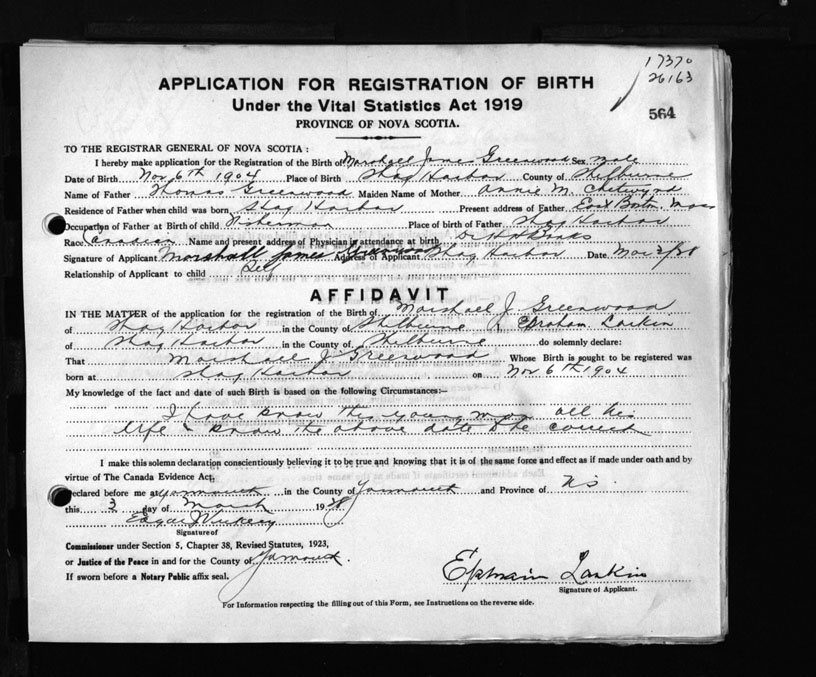 17370
26163
564
APPLICATION FOR REGISTRATION OF BIRTH
Under the Vital Statistics Act 1919
PROVINCE OF NOVA SCOTIA.
TO THE REGISTRAR GENERAL OF NOVA SCOTIA :
I hereby make application for the Registration of the Birth of Marshall James Greenwood Sex Male
Date of Birth Nov 6th 1904 Place of Birth Shag Harbor County of Shelburne
Name of Father Thomas Greenwood Maiden Name of Mother Annie M. Chetwynd
Residence of Father when child was born Shag Harbor Present address of Father East Boston, Mass
Occupation of Father at Birth of child Fisherman Place of birth of Father Shag Harbor
Race Canadian Name and present address of Physician in attendance at birth Dr
Signature of Applicant Marshall James Greenwood Address of Applicant Shag Harbor Date Mar 3/28
Relationship of Applicant to child Self
AFFIDAVIT
IN THE MATTER of the application for the registration of the Birth of Marshall J. Greenwood
of Shag Harbor in the County of Shelburne I, Larkin
of Shag Harbor in the County of Shelburne do solemnly declare:
That Marshall J Greenwood Whose Birth is sought to be registered was
born at Shag Harbor on Nov 6th 1904
My knowledge of the fact and date of such Birth is based on the following Circumstances:—
I have know this young man all his
life & know the above date to be correct
I make this solemn declaration conscientiously believing it to be true and knowing that it is of the same force and effect as if made under oath and by
virtue of The Canada Evidence Act,
Declared before me at Yarmouth in the County of Yarmouth and Province of N.S.
this 3 day of March 1928
Edgar J Vickery
Signature of
Commissioner under Section 5, Chapter 38, Revised Statutes, 1923,
or Justice of the Peace in and for the County of Yarmouth.
If sworn before a Notary Public affix seal.
Ephraim Larkin
Signature of Applicant.
For Information respecting the filling out of this Form, see Instructions on the reverse side.